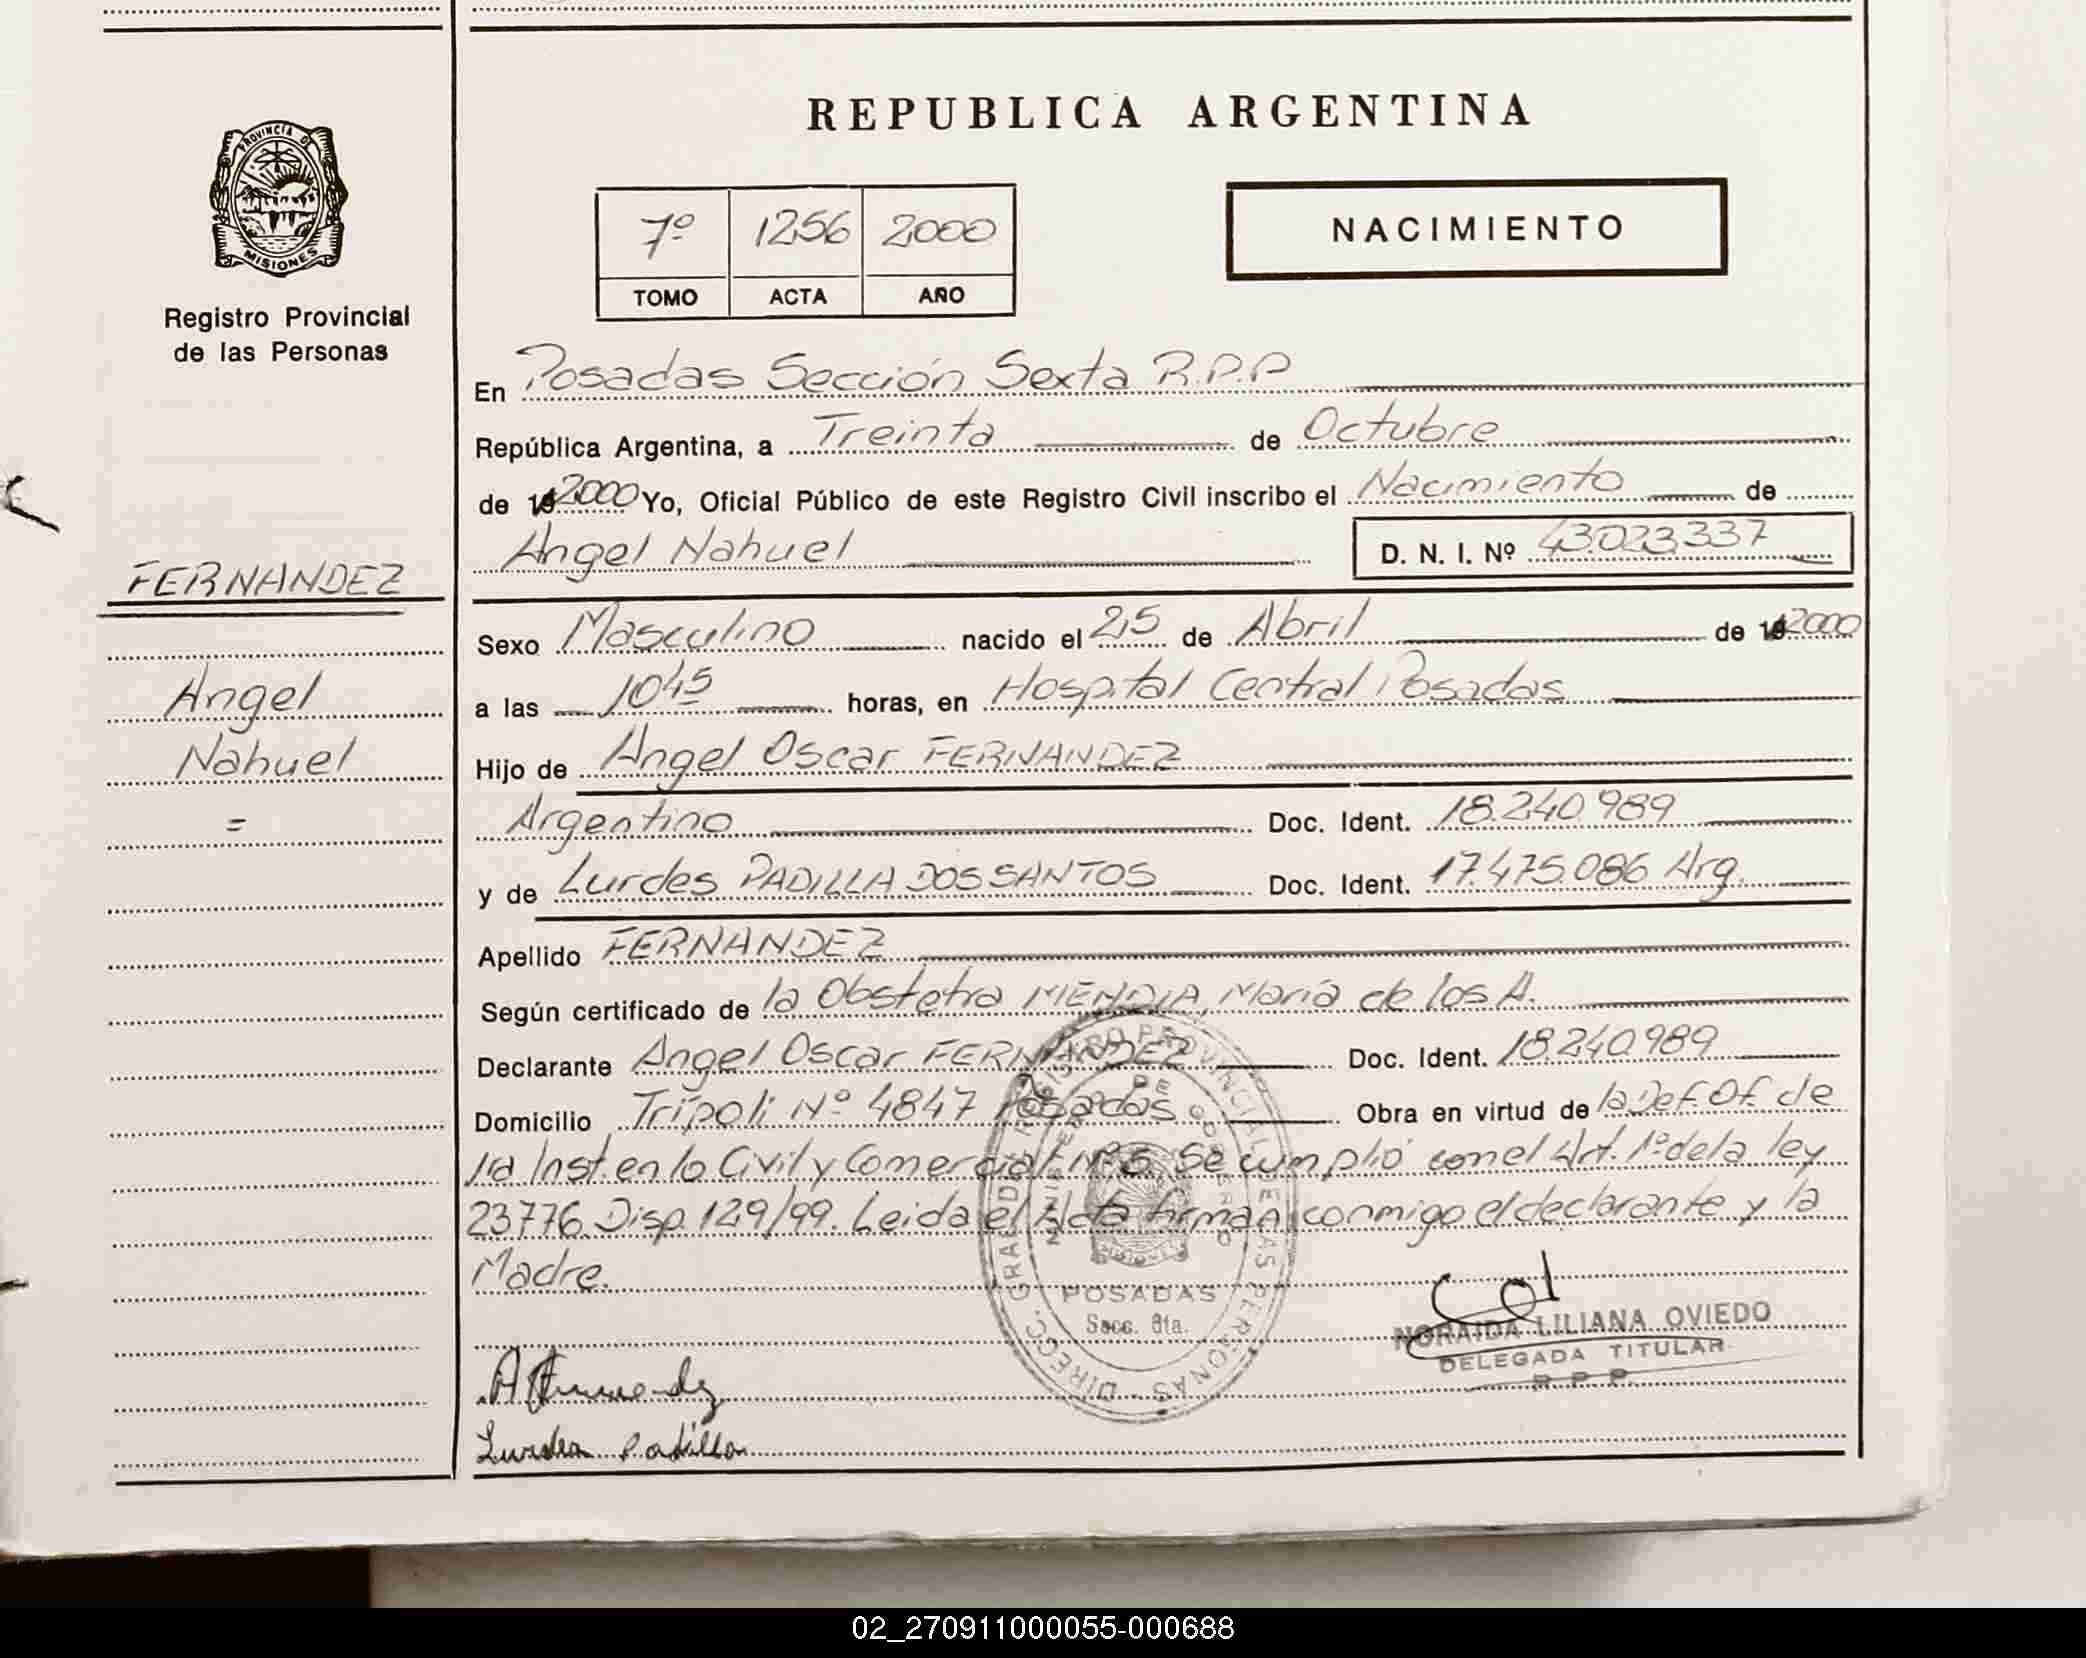 REPUBLICA ARGENTINA
PROVINCIA DE
MISIONES
Registro Provincial
de las Personas
7º 1256 2000
TOMO ACTA AÑO
NACIMIENTO
En Posadas Sección Sexta R.P.P
República Argentina, a Treinta de Octubre
de 2000 Yo, Oficial Público de este Registro Civil inscribo el Nacimiento de
Angel Nahuel D. N. I. Nº 43.023.337
FERNANDEZ
Angel
Nahuel
=
Sexo Masculino nacido el 25 de Abril de 2000
a las 1045 horas, en Hospital Central Posadas
Hijo de Angel Oscar FERNANDEZ
Argentino Doc. Ident. 18.240.989
y de Lurdes PADILLA DOS SANTOS Doc. Ident. 17.475.086 Arg.
Apellido FERNANDEZ
Según certificado de la Obstetra MENDIA, María de los A.
Declarante Angel Oscar FERNANDEZ Doc. Ident. 18.240.989
Domicilio Trípoli Nº 4847 Posadas. Obra en virtud de la Def. Of. de
1ra Inst. en lo Civil y Comercial Nº 5. Se cumplió con el Art. 1º de la ley
23776. Disp. 129/99. Leida el Acta firman conmigo el declarante y la
Madre.
DIRECC. GRAL. DEL REGISTRO PROVINCIAL DE LAS PERSONAS
MINISTERIO DE GOBIERNO
POSADAS
Secc. 6ta.
NORAIDA LILIANA OVIEDO
DELEGADA TITULAR
R P P
A Fernandez
Lurdes Padilla
02_270911000055-000688